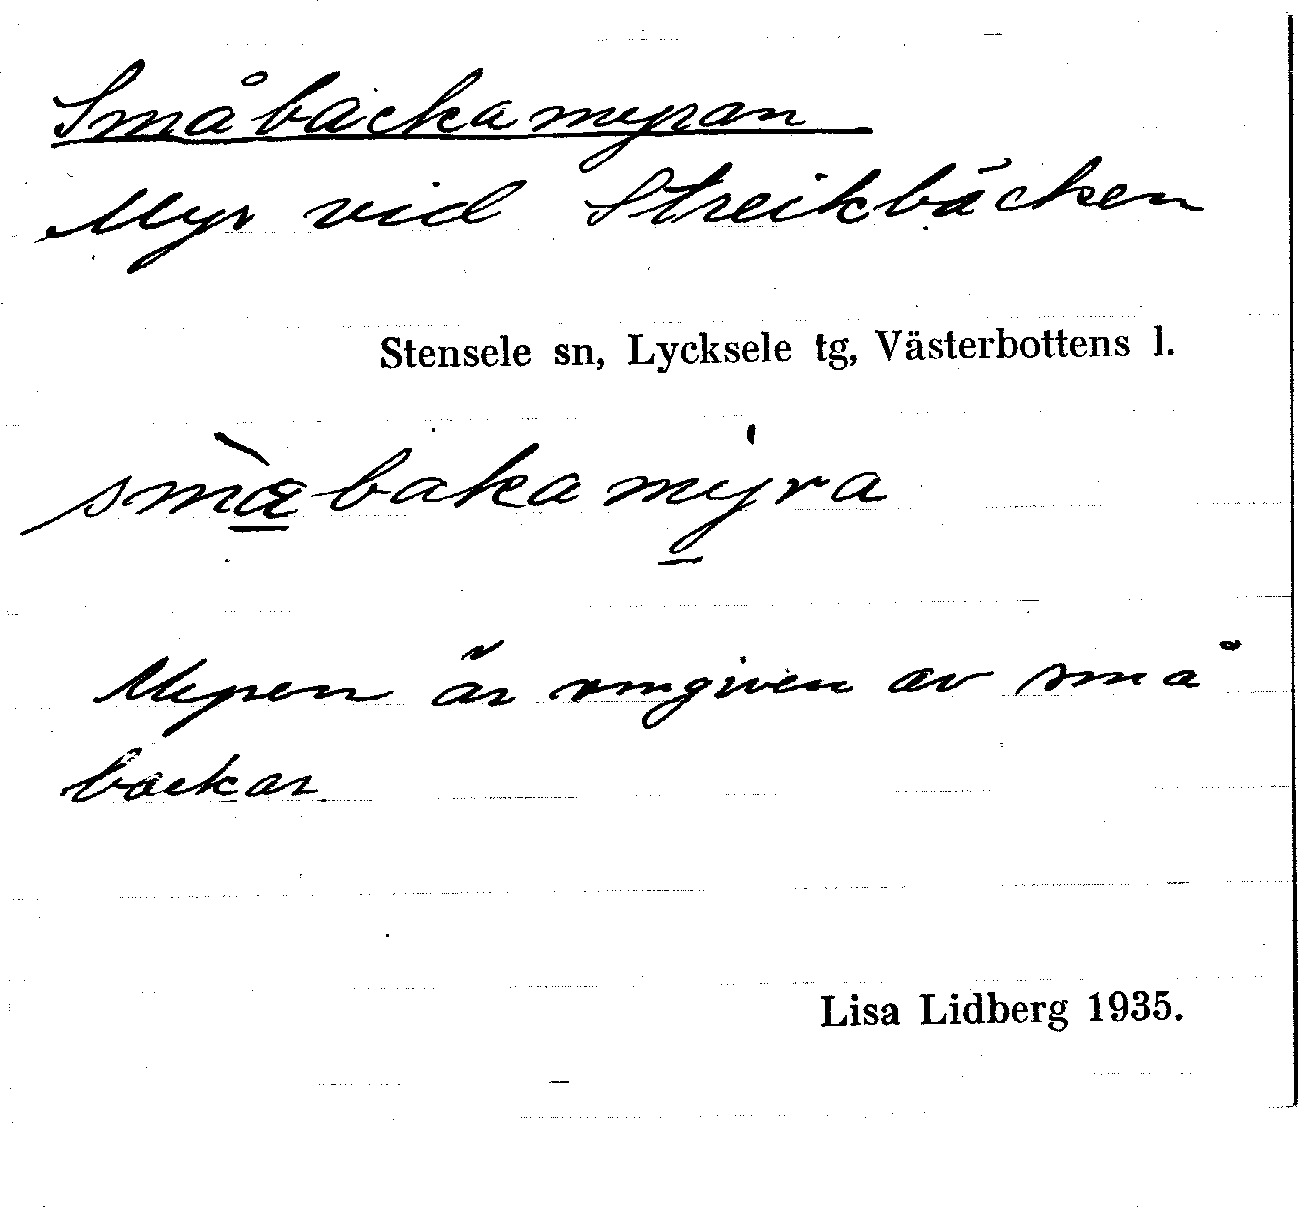 Småbackamyran
Myr vid Streikbäcken
Stensele sn, Lycksele tg, Västerbottens l.
smæ̀bakamy̍ra
Myren är omgiven av små
backar
Lisa Lidberg 1935.